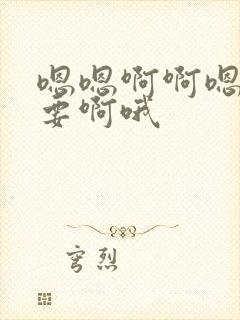 嗯嗯啊啊嗯
要啊哦
穹烈